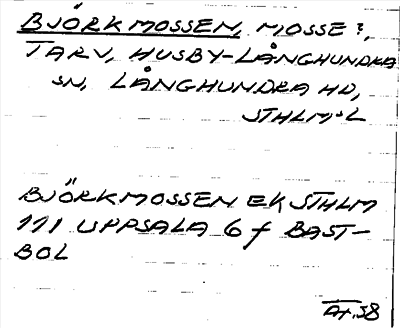 BJÖRKMOSSEN, MOSSE?,
TARV, HUSBY-LÅNGHUNDRA
SN, LÅNGHUNDRA HD,
STHLMS L
BJÖRKMOSSEN EK STHLM
111 UPPSALA 6 f BAST-
BOL